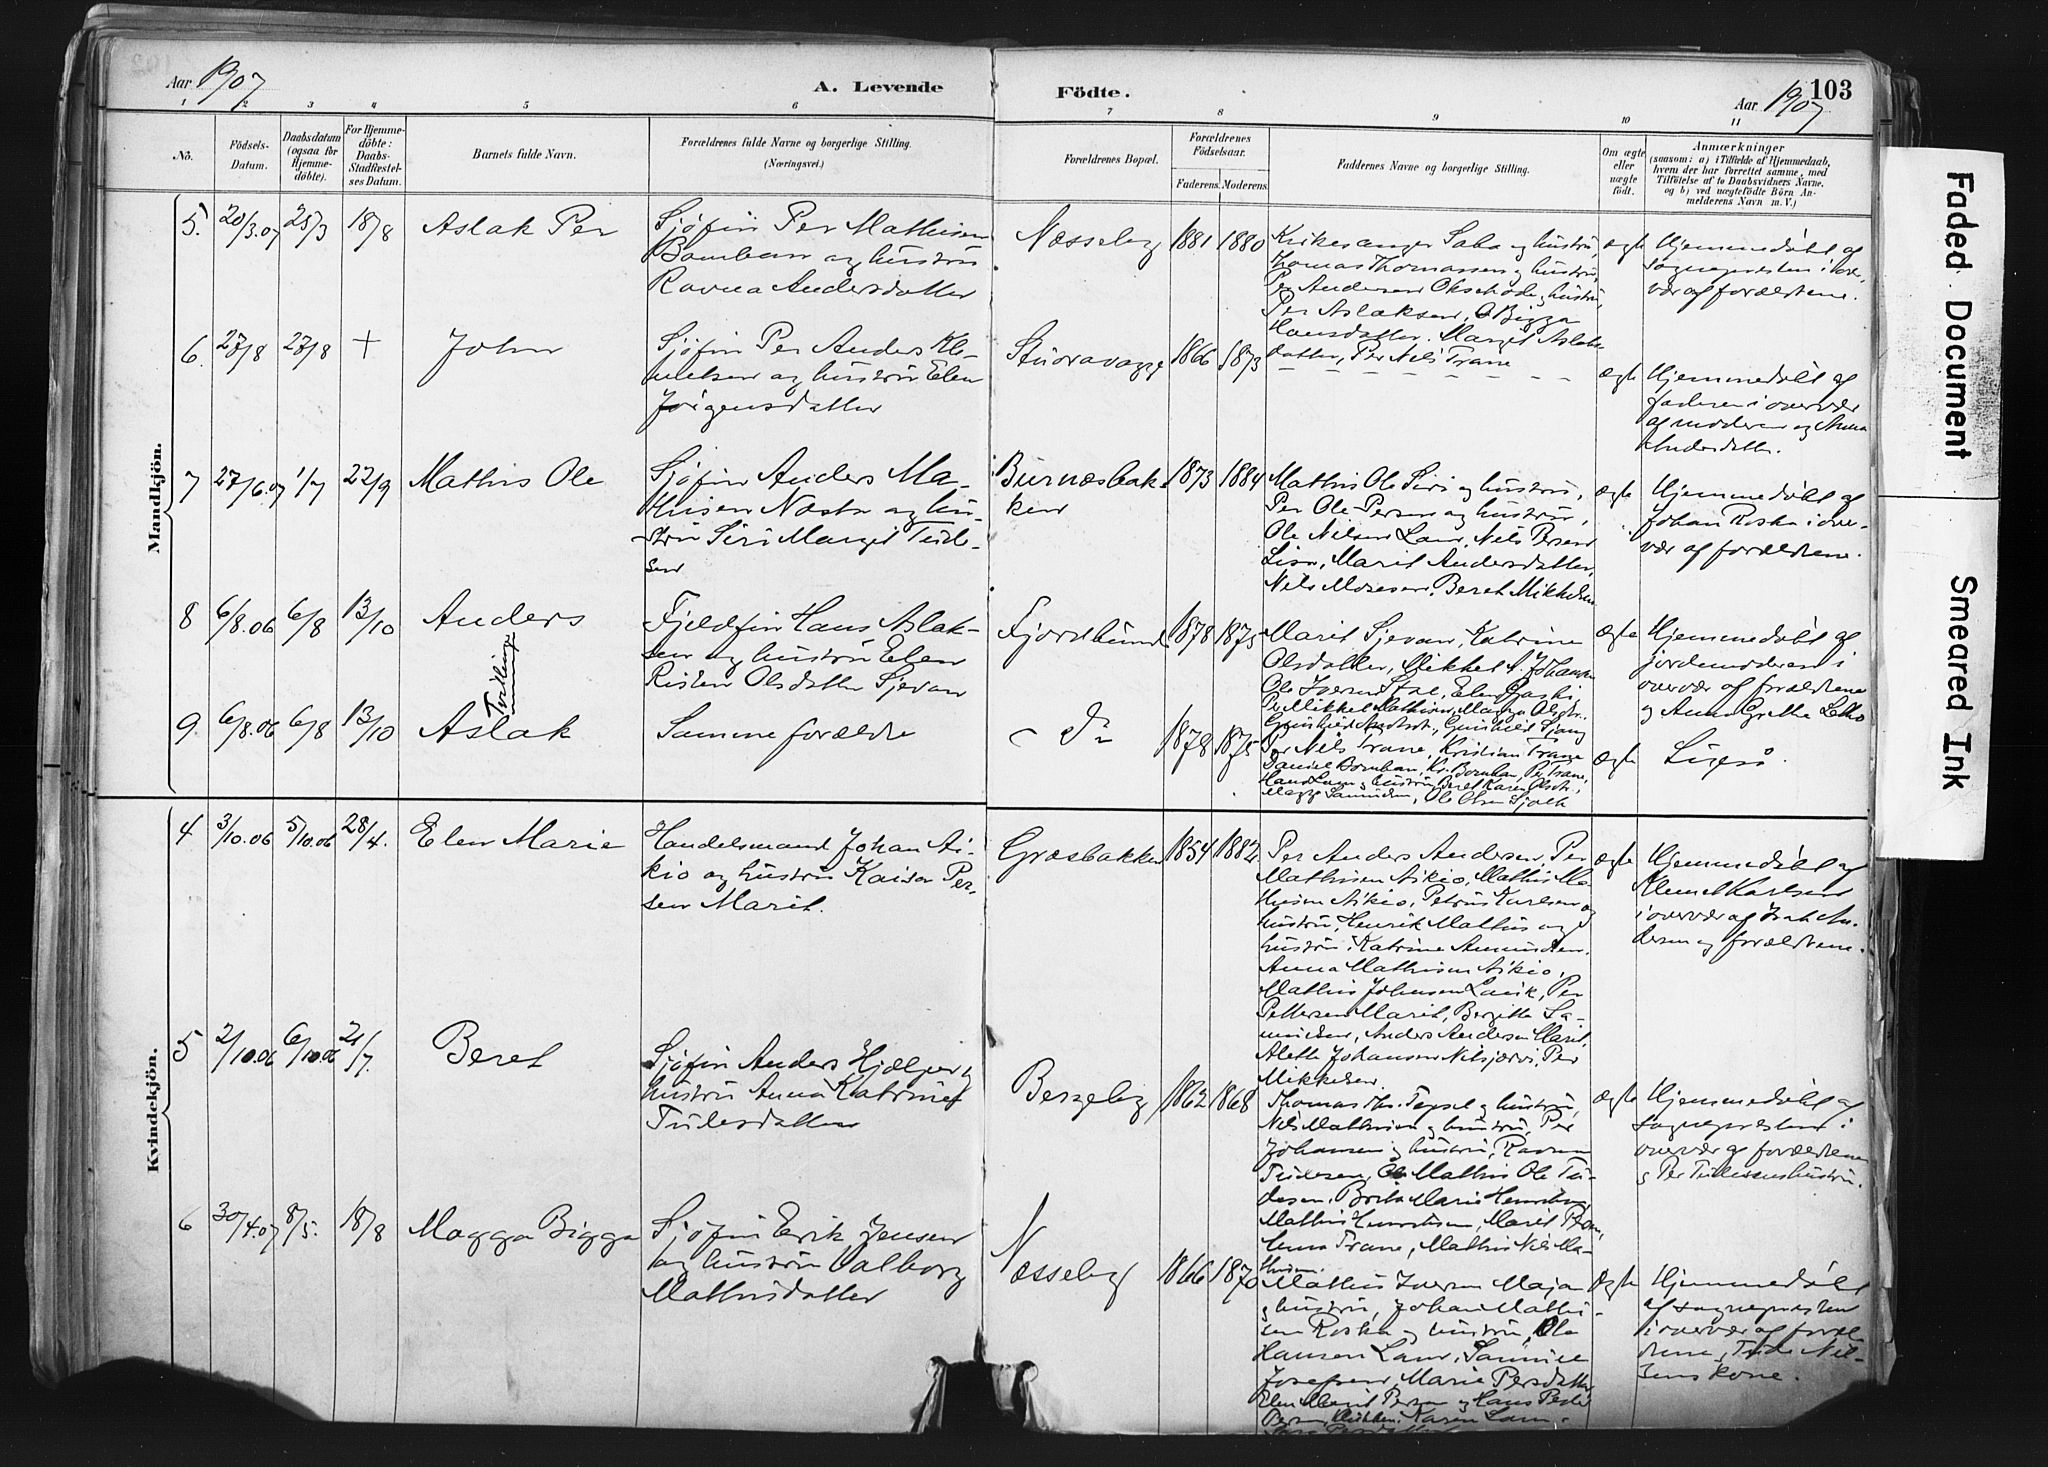 Aar 1907
A. Levende
Födte.
Aar 1907
103
1 2 3 4 5 6 7 8 9 10 11
No.
Födsels-Datum.
Daabsdatum (ogsaa for Hjemme-döbte).
For Hjemme-döbte: Daabs-Stadfæstel-ses Datum.
Barnets fulde Navn.
Forældrenes fulde Navne og borgerlige Stilling.
(Næringsvei.)
Forældrenes Bopæl.
Forældrenes Födselsaar.
Faderens. Moderens.
Faddernes Navne og borgerlige Stilling.
Om ægte eller uægte födt.
Anmærkninger
(saasom: a) i Tilfælde af Hjemmedaab,
hvem der har forrettet samme, med
Tilföielse af to Daabsvidners Navne,
og b) ved uægtefödte Börn An-
melderens Navn m. V.)
Mandkjön.
5. 20/3.07 25/3 18/8 Aslak Per
Sjøfin Per Mathisen
Bomban og hustru
Ravna Andersdatter
Næsseby 1881 1880
Kirkesanger Saba og hustru,
Thomas Thomassen og hustru,
Per Andersen Okschode og hustru,
Per Aslaksen, Bigga
Hansdatter. Margit Aslak-
datter, Per Nils Trane
ægte
Hjemmedøbt af
sognepresten i over-
vær af forældrene.
6. 27/8 27/8 + John
Sjøfin Per Anders Kle-
metsen og hustru Elen
Jørgensdatter
Stuoravagge 1866 1873
ægte
Hjemmedøbt af
faderen i overvær
af moderen og Anna
Andersdatter.
7 27/6.07 1/7 22/9 Mathis Ole
Sjøfin Anders Ma-
thisen Næste og hu-
stru Siri Margit Tude-
sen
Burnæsbak-
ken
1873 1884
Mathis Ole Siri og hustru,
Per Ole Persen og hustru,
Ole Nilsen Lam, Nils Persen
Lisa, Marit Andersdatter,
Nils Mosesen. Beret Mikkelsen
ægte
Hjemmedøbt af
Johan Roska i over-
vær af forældrene.
8 6/8.06 6/8 13/10 Anders
Tvillinger
Fjeldfin Hans Aslak-
sen og hustru Elen
Risten Olsdatter Sjevan
Fjordbund 1878 1875
Marit Sjevan, Katrine
Olsdatter, Mikkel A. Johansen
Ole Iversen
Per Mikkel Mathisen, Magga Olsdtr.
ægte
Hjemmedøbt af
jordemoderen i
overvær af forældrene
og Anna Grethe Lekko
9. 6/8.06 6/8 13/10 Aslak
Samme forældre
– do 1878 1875
Per Nils Trane, Kristian Trane
Daniel Bomban, Kr. Bomban, Per Trane,
Hans Lam og hustru Beret Karen Olsdt.,
Magga Samuelsen, Ole Olsen
ægte
Ligeså
Kvindekjön.
4 3/10.06 5/10.06 28/4. Elen Marie
Handelsmand Johan Ai-
kio og hustru Kaisa Per-
sen Marit.
Græsbakken 1854 1882
Per Anders Andersen, Per
Mathisen Aikio, Mathis Ma-
thisen Aikio, Petrus Karlsen og
hustru, Henrik Mathis og
hustru, Katrine Amundsen.
Anna Mathisen Aikio,
Mathis Johnsen Lavik, Per
Pettersen Marit, Bergitte Sa-
muelsen, Anders Andersen Marit,
Aletta Johansen Nilsjærvi, Per
Mikkelsen.
ægte
Hjemmedøbt af
Klemet Karlsen
i overvær af Isak An-
dersen og forældrene.
5 2/10.06 6/10.06 21/7. Beret
Sjøfin Anders Hjælper og
hustru Anna Katrine
Tudesdatter
Bergeby 1862 1868
Thomas Th. Topsel og hustru,
Nils Mathisen og hustru, Per
Johansen og hustru, Ravna
Tudesen, Mathis Ole Tu-
desen, Brita Marie Henriksen,
Mathis Henriksen, Marit Persen,
Anna Trane, Mathis Nils Ma-
thisen.
ægte
Hjemmedøbt af
sognepresten i
overvær af forældrene
og Per Tudesens hustru.
6 30/4.07 8/5. 18/8 Magga Bigga
Sjøfin Erik Jensen
og hustru Valborg
Mathisdatter
Næsseby 1866 1870
Mathis Iversen Majan
og hustru, Johan Mathi-
sen Roska og hustru, Ole
Hansen Lam, Samuel
Josefsen, Marie Persdatter
Elen Marit Persen og Hans Peder
Persen, Karen Lam.
ægte
Hjemmedøbt
af sognepresten
i overvær af foræl-
drene, Tude Nil-
sens kone.
Faded Document
Smeared Ink